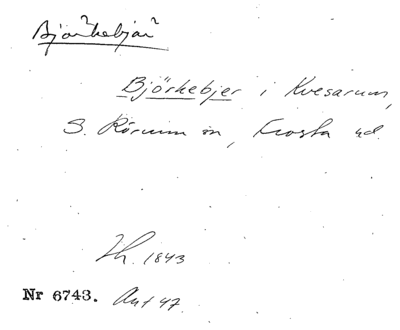 Björkebjär
Björkebjer i Kvesarum,
S. Rörum sn, Frosta hd.
Th. 1843
Nr 6743. Ant 47.